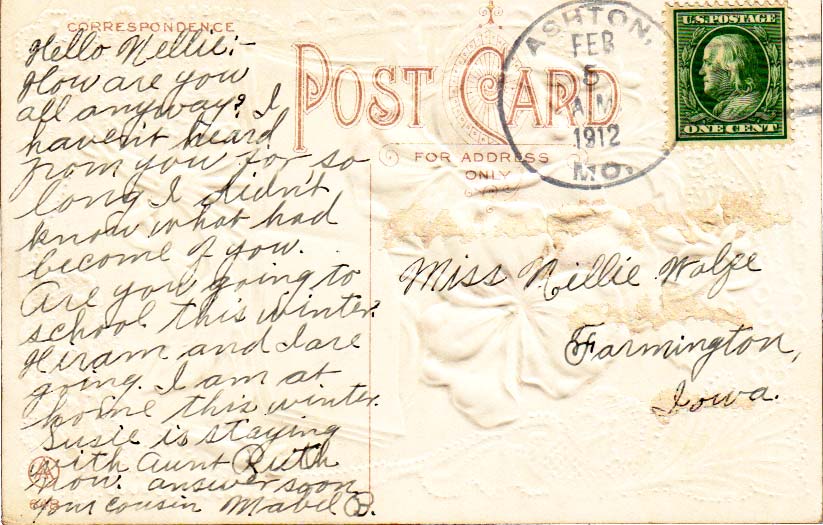 CORRESPONDENCE
Hello Nellie:-
How are you
all anyway? I
havent heard
from you for so
long I didn't
know what had
become of you.
Are you going to
school this winter.
Hiram and I are
going. I am at
home this winter.
Susie is staying
with Aunt Ruth
now. answer soon
your cousin Mabel B.
POST CARD
FOR ADDRESS
ONLY
ASHTON,
FEB
5
A.M.
1912
MO.
U.S. POSTAGE
ONE CENT
Miss Nellie Wolfe
Farmington,
Iowa.